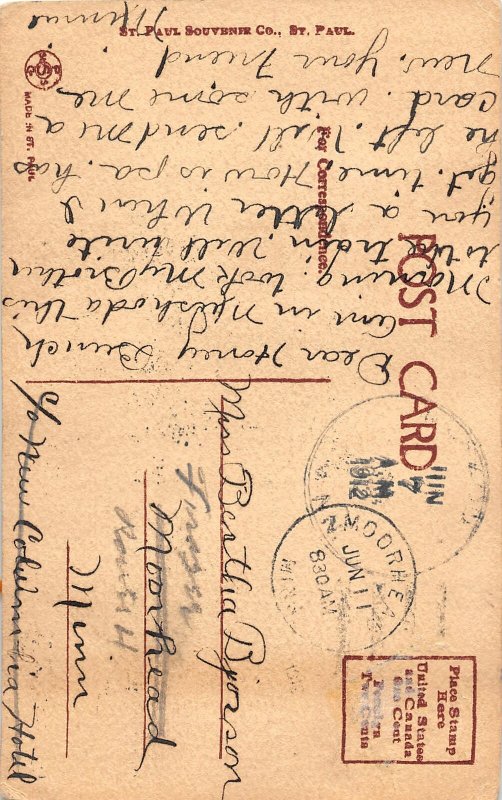 St. Paul Souvenir Co., St. Paul.
MADE IN ST. PAUL
POST CARD
For Correspondence.
Dear Honey Bunch
am in this
Morning. took my Brother
to the train. Will write
you a letter When I
get time. How is pa. has
he left. Will send me a
card. with some me
new. your friend
Minnie
JUN
7
A M
1912
MOORHEAD
MINN
JUN 11
830AM
Place Stamp
Here
United States
and Canada
One Cent
Foreign
Two Cents
Miss Bertha Bjorson
Moorhead
Minn
c/o New Columbia Hotel